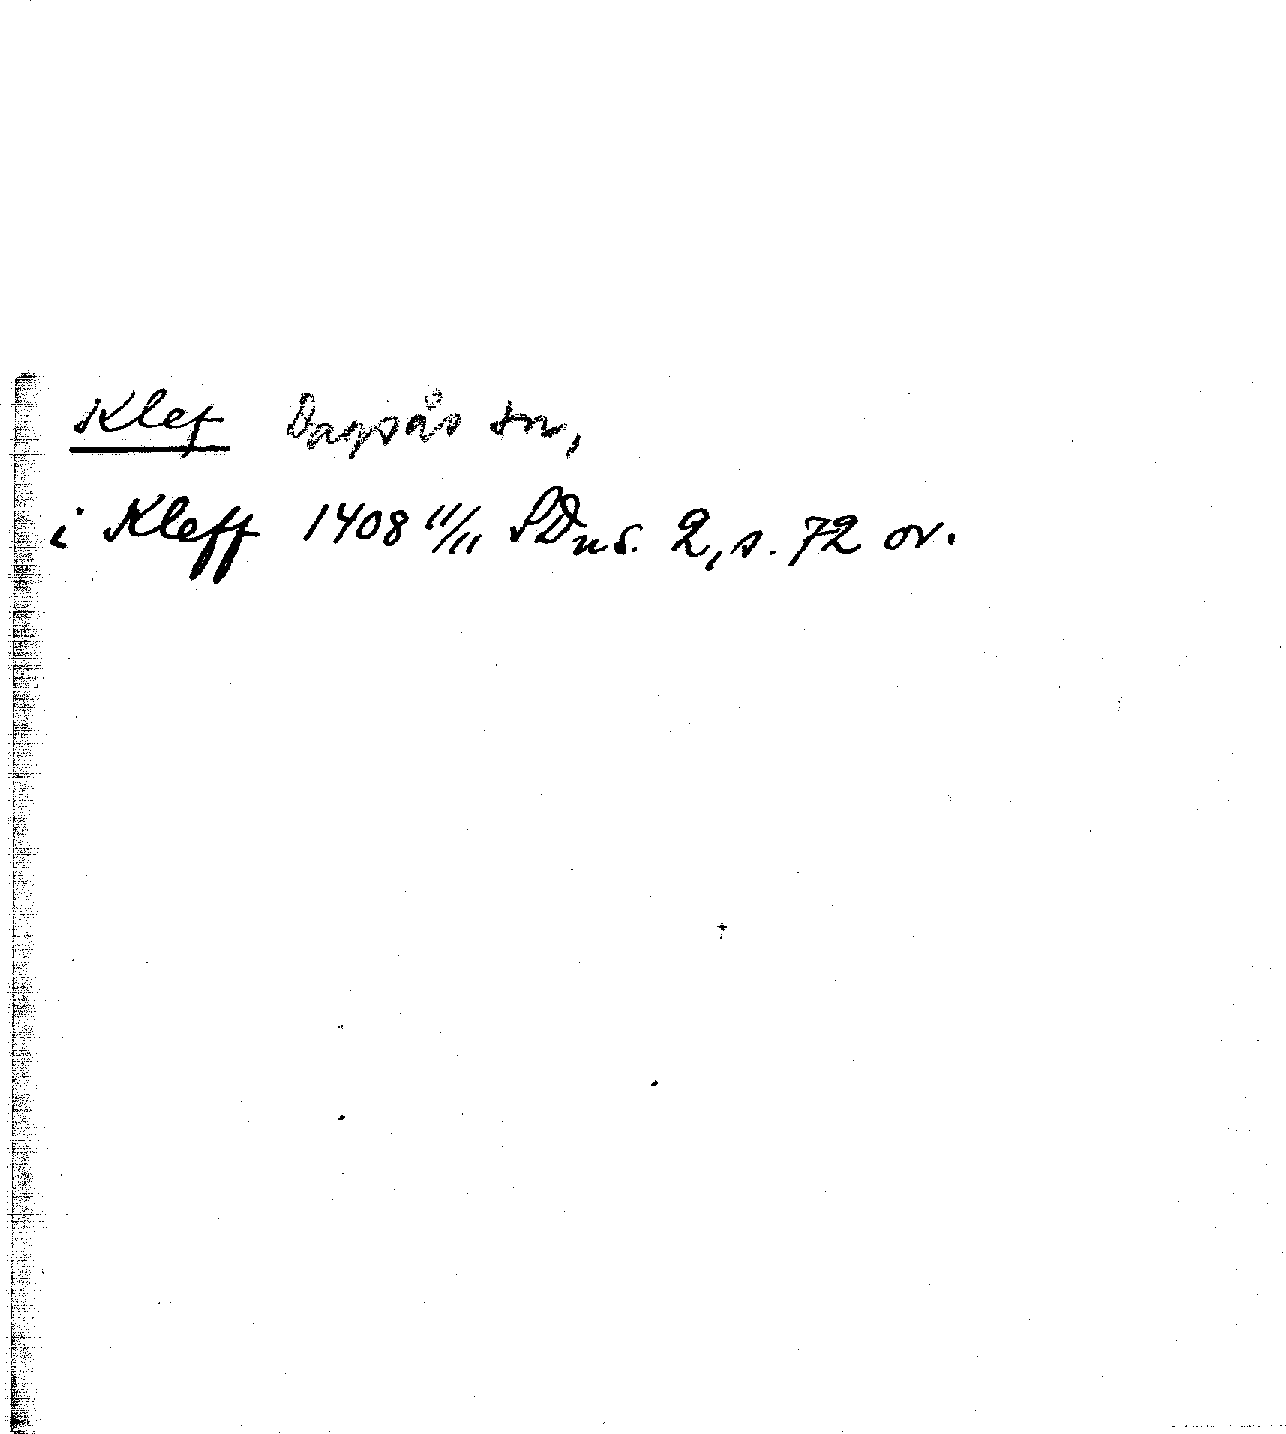 Klef Dagsås sn,
i Kleff 1408 11/11 SDns. 2, s. 72 or.